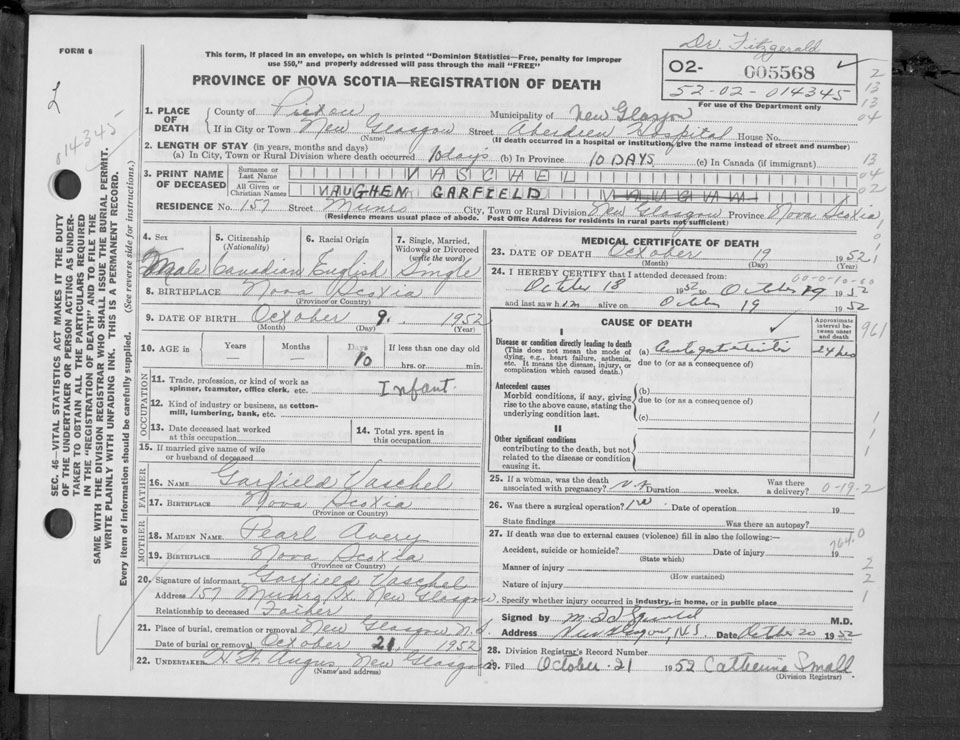 FORM 6
This form, if placed in an envelope, on which is printed "Dominion Statistics—Free, penalty for improper
use $50," and properly addressed will pass through the mail "FREE"
PROVINCE OF NOVA SCOTIA—REGISTRATION OF DEATH
Dr. Fitzgerald
02- 005568
52-02-014345
For use of the Department only
2
13
13
04
13
04
02
2
014345
SEC. 46—VITAL STATISTICS ACT MAKES IT THE DUTY
OF THE UNDERTAKER OR PERSON ACTING AS UNDER-
TAKER TO OBTAIN ALL THE PARTICULARS REQUIRED
IN THE "REGISTRATION OF DEATH" AND TO FILE THE
SAME WITH THE DIVISION REGISTRAR WHO SHALL ISSUE THE BURIAL PERMIT.
WRITE PLAINLY WITH UNFADING INK. THIS IS A PERMANENT RECORD.
Every item of information should be carefully supplied. (See reverse side for instructions.)
1. PLACE OF DEATH County of Pictou Municipality of New Glasgow
If in City or Town New Glasgow Street Aberdeen Hospital House No.
(Name) (If death occurred in a hospital or institution, give the name instead of street and number)
2. LENGTH OF STAY (in years, months and days)
(a) In City, Town or Rural Division where death occurred 10 days (b) In Province 10 DAYS (c) In Canada (if immigrant)
3. PRINT NAME OF DECEASED Surname or Last Name VASCHEL
All Given or Christian Names VAUGHEN GARFIELD
RESIDENCE No. 157 Street Munro City, Town or Rural Division New Glasgow Province Nova Scotia
(Residence means usual place of abode. Post Office Address for residents in rural parts not sufficient)
4. Sex 5. Citizenship (Nationality) 6. Racial Origin 7. Single, Married, Widowed or Divorced (write the word)
Male Canadian English Single
8. BIRTHPLACE Nova Scotia
(Province or Country)
9. DATE OF BIRTH October 9, 1952
(Month) (Day) (Year)
10. AGE in Years Months Days If less than one day old
10 hrs. or min.
OCCUPATION
11. Trade, profession, or kind of work as spinner, teamster, office clerk, etc. Infant
12. Kind of industry or business, as cotton-mill, lumbering, bank, etc.
13. Date deceased last worked at this occupation 14. Total yrs. spent in this occupation
15. If married give name of wife or husband of deceased
FATHER
16. NAME Garfield Vaschel
17. BIRTHPLACE Nova Scotia
(Province or Country)
MOTHER
18. MAIDEN NAME Pearl Avery
19. BIRTHPLACE Nova Scotia
(Province or Country)
20. Signature of informant Garfield Vaschel
Address 157 Munro St. New Glasgow
Relationship to deceased Father
21. Place of burial, cremation or removal New Glasgow N.S.
Date of burial or removal October 21, 1952
22. UNDERTAKER H. W. Angus, New Glasgow
(Name and address)
MEDICAL CERTIFICATE OF DEATH
23. DATE OF DEATH October 19 1952
(Month) (Day) (Year)
24. I HEREBY CERTIFY that I attended deceased from:
October 18 1952 to October 19 1952
and last saw him alive on October 19 1952
CAUSE OF DEATH
Approximate interval between onset and death
I
Disease or condition directly leading to death
(This does not mean the mode of dying, e.g., heart failure, asthenia, etc. It means the disease, injury, or complication which caused death.)
(a)
24 hrs
due to (or as a consequence of)
961
Antecedent causes
Morbid conditions, if any, giving rise to the above cause, stating the underlying condition last.
(b)
due to (or as a consequence of)
(c)
II
Other significant conditions
contributing to the death, but not related to the disease or condition causing it.
25. If a woman, was the death associated with pregnancy? Duration weeks. Was there a delivery? 0-19-2
26. Was there a surgical operation? no Date of operation 19
State findings Was there an autopsy?
27. If death was due to external causes (violence) fill in also the following:—
764.0
Accident, suicide or homicide? Date of injury 19
(State which)
Manner of injury
(How sustained)
Nature of injury
Specify whether injury occurred in industry, in home, or in public place
Signed by M.D.
Address New Glasgow, N.S. Date October 20 1952
28. Division Registrar's Record Number
29. Filed October 21 1952 Catherine Small
(Division Registrar)